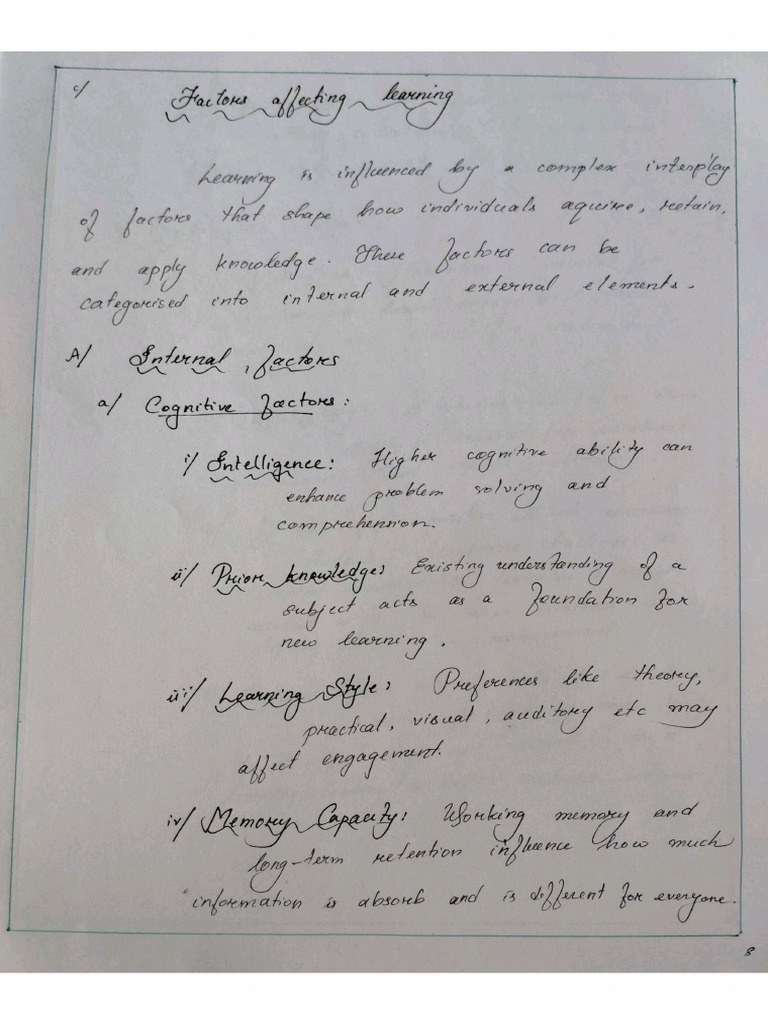 c/ Factors affecting learning
Learning is influenced by a complex interplay
of factors that shape how individuals aquire, retain,
and apply knowledge. These factors can be
categorised into internal and external elements.
A/ Internal factors
a/ Cognitive factors:
i/ Intelligence: Higher cognitive ability can
enhance problem solving and
comprehension.
ii/ Prior knowledge: Existing understanding of a
subject acts as a foundation for
new learning.
iii/ Learning Style: Preferences like theory,
practical, visual, auditory etc may
affect engagement.
iv/ Memory Capacity: Working memory and
long-term retention influence how much
information is absorb and is different for everyone.
8